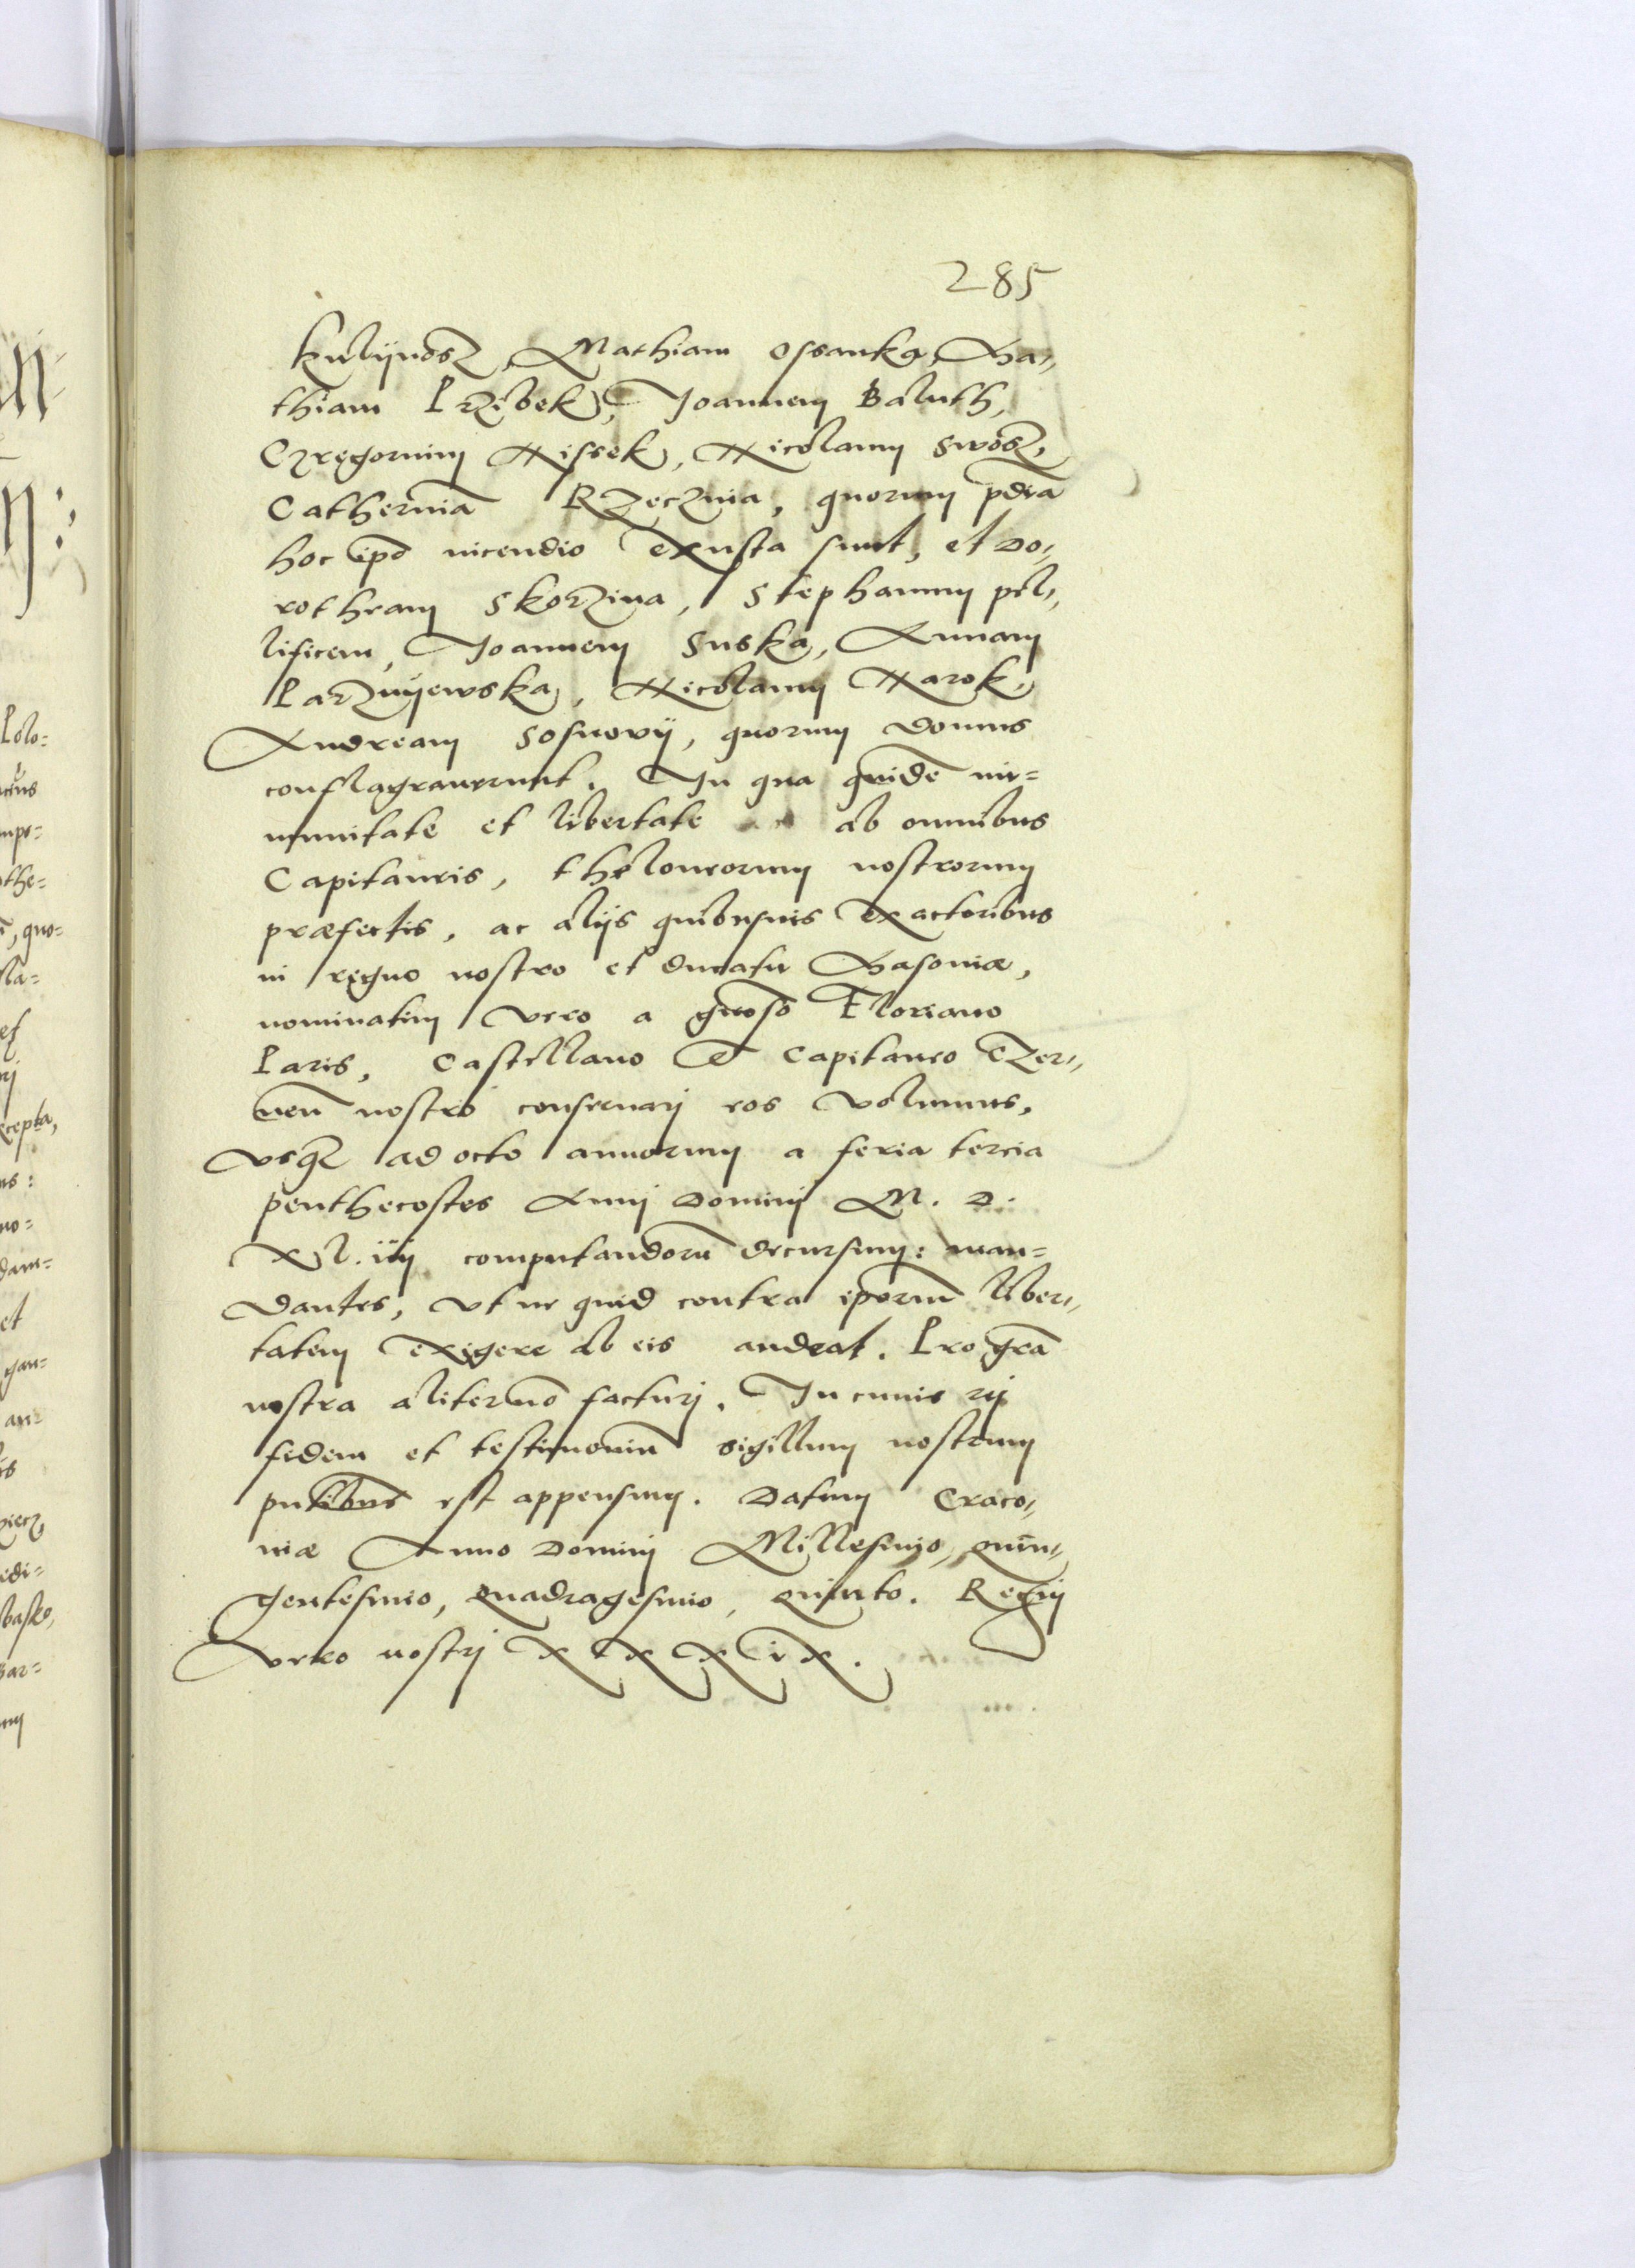 285
Kulijnosz, Mathiam Ossanka, Ma,,
thiam Przibek, Joannem Baluth,
Gregorium Nissek, Nicolaum Swosz,
Catherinā Rzecznia, quorum pdia
hoc ipō incendio exusta sunt, et Do,,
rotheam Skorzina, Stephanum pel,,
lificem, Joannem Suska, Annam
Parznijewska, Nicolaum Narok,
Andream Sosnovij, quorum domus
conflagraverunt. In qua quidē im=
munitate et libertate ab omnibus
Capitaneis, theloneorum nostrorum
præfectis, ac alijs quibusuis exactoribus
in regno nostro et ducatu Masoviæ,
nominatim vero a gnroso Floriano
Paris, Castellano et Capitaneo Czer,,
neñ nostro conservarj eos volumus,
vsqz ad octo annorum a feria tercia
penthecostes Annj Dominj M. D.
XL.iiij computandorū decursum: man=
dantes, vt ne quid contra ipōrum liber,,
tatem exigere ab eis audeat. Pro grā
nostra aliter nō facturj. In cuius rei
fidem et testimoniū sigillum nostrum
pntibus est appensum. Datum Craco,,
viæ Anno Dominj Millesimo, quin,,
gentesimo, quadragesimo, quinto. Regnj
vero nostrj XXXIX.